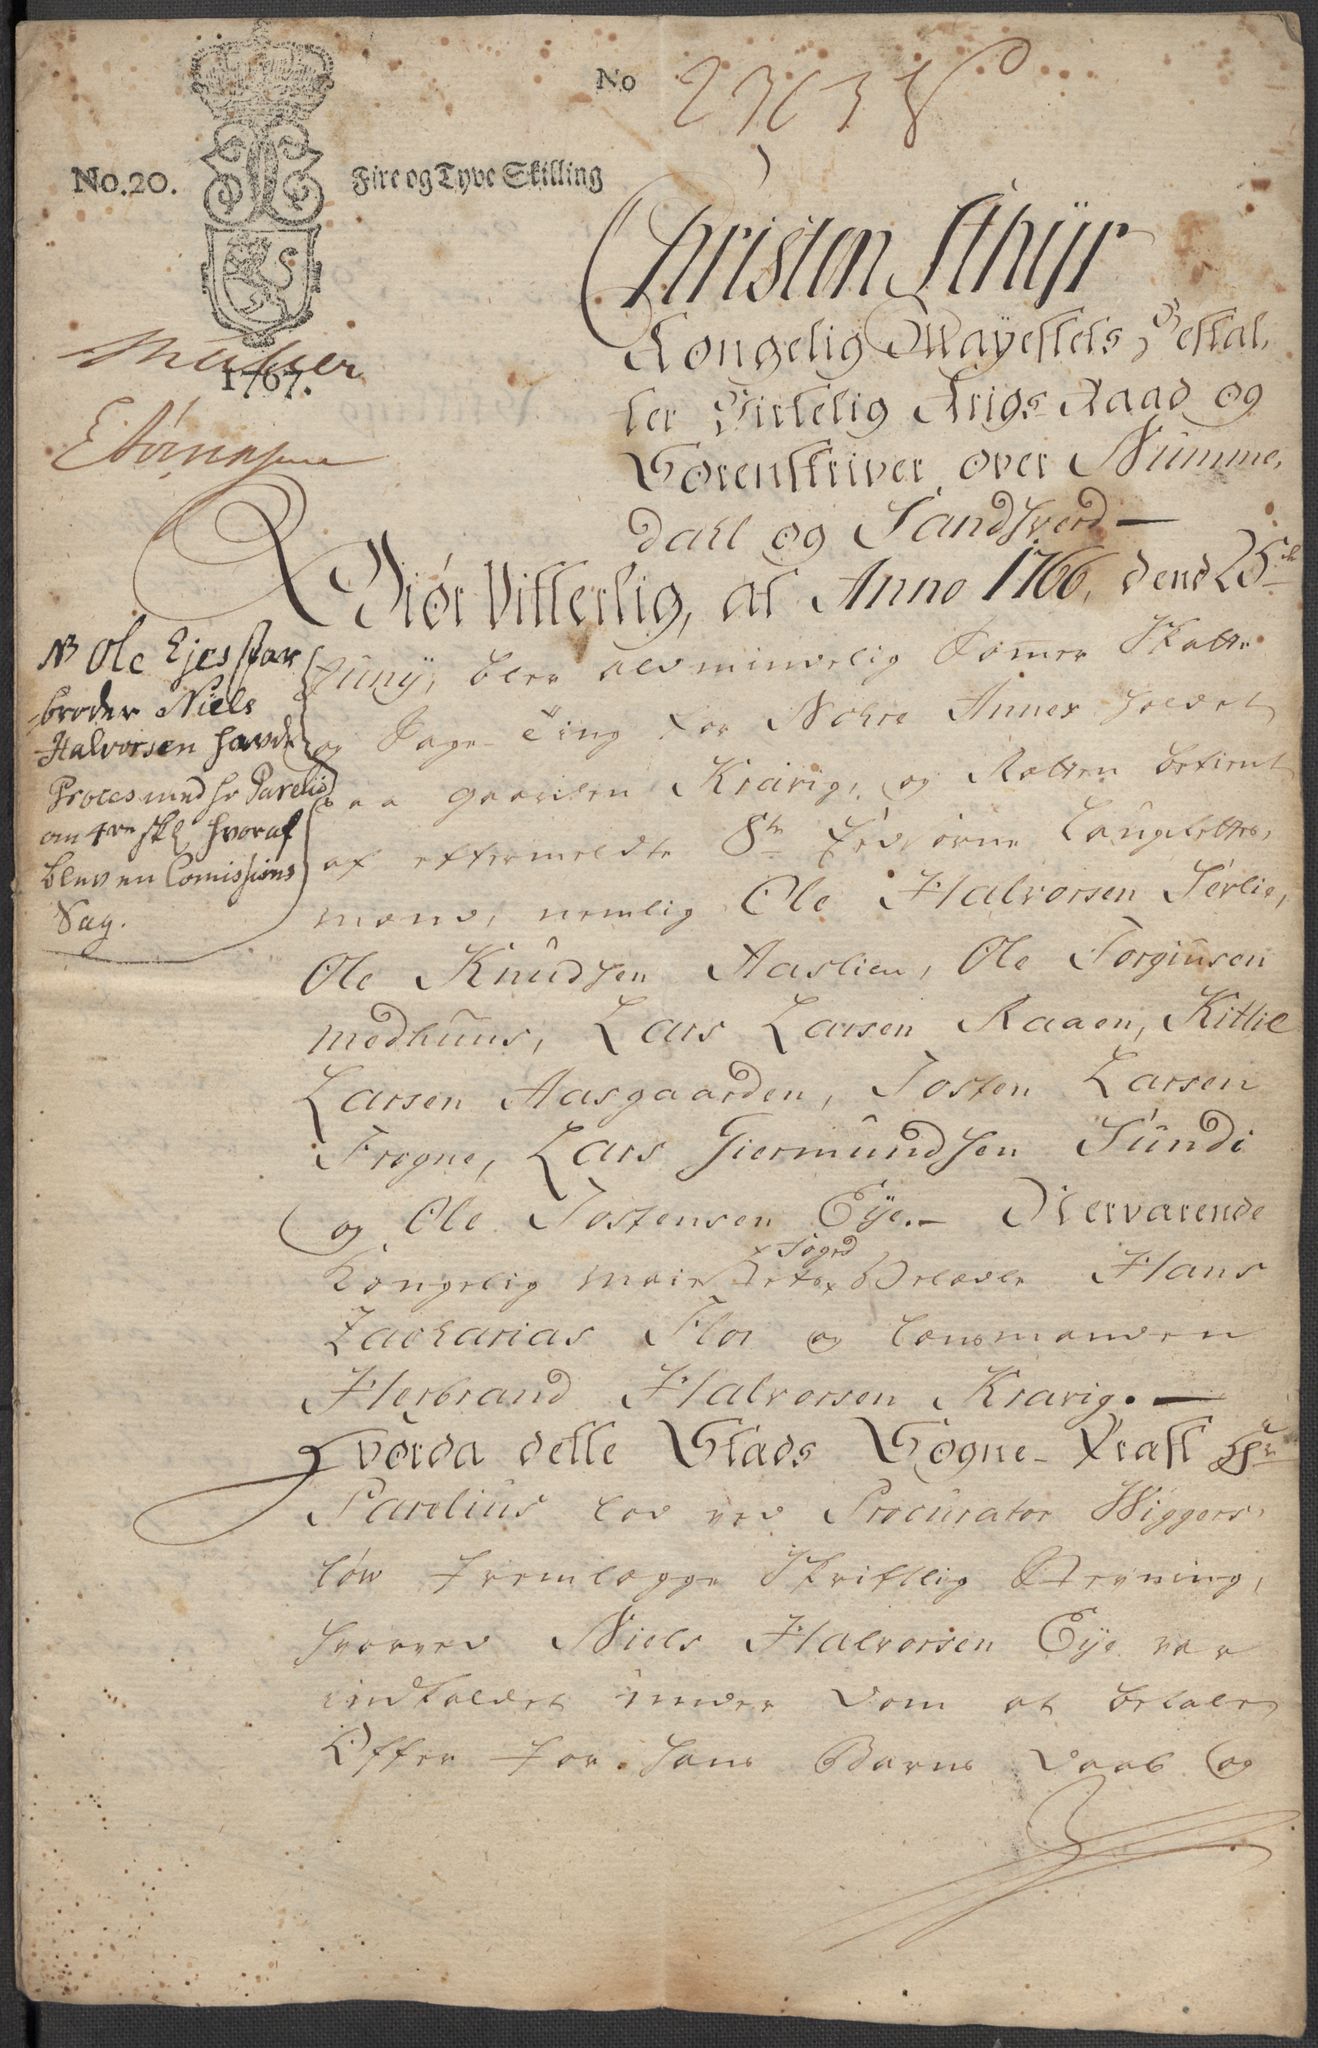 No
No.20. Fire og Tyve Skilling
1767.
Christen Sthyr
Kongelig Mayestets Bestal,
ter Virkelig Krigs Raad og
Sorenskriver over Numme,
dahl og Sandsverd —
Giør Vitterlig, at Anno 1766, dend 25de
Junij, blev almindelig Sommer Skatte
og Sage-Ting for Nohre Annex holdet
paa gaarden Kravig, og Retten betient
af eftermeldte 8te Edsvorne Laugrettes,
mænd, nemlig Ole Halvorsen Serlie,
Ole Knudsen Aaslien, Ole Torginsen
Medhuus, Lars Larsen Raaen, Kittil
Larsen Aasgaarden, Josten Larsen
Frogne, Lars Giermundsen Sundi
og Ole Jostensen Eye. – Nervarende
Foged
Kongelig Maiestets Hans
Zacharias Flor og Lensmanden
Herbrand Halvorsen Kravig. —
Hvorda dette Stads Sogne-Præst Hr
Parelius lod ved Procurator Wiggers,
løw fremlægge Skriftlig Stevning,
hvorved Niels Halvorsen Eye var
indkaldet under Dom at betale
Offer for hans Barns Daab og
NB Ole Ejes far
broder Niels
Halvorsen havde
Proces med hr Parelius
om 4re skl hvoraf
blev en Comissions
Sag.